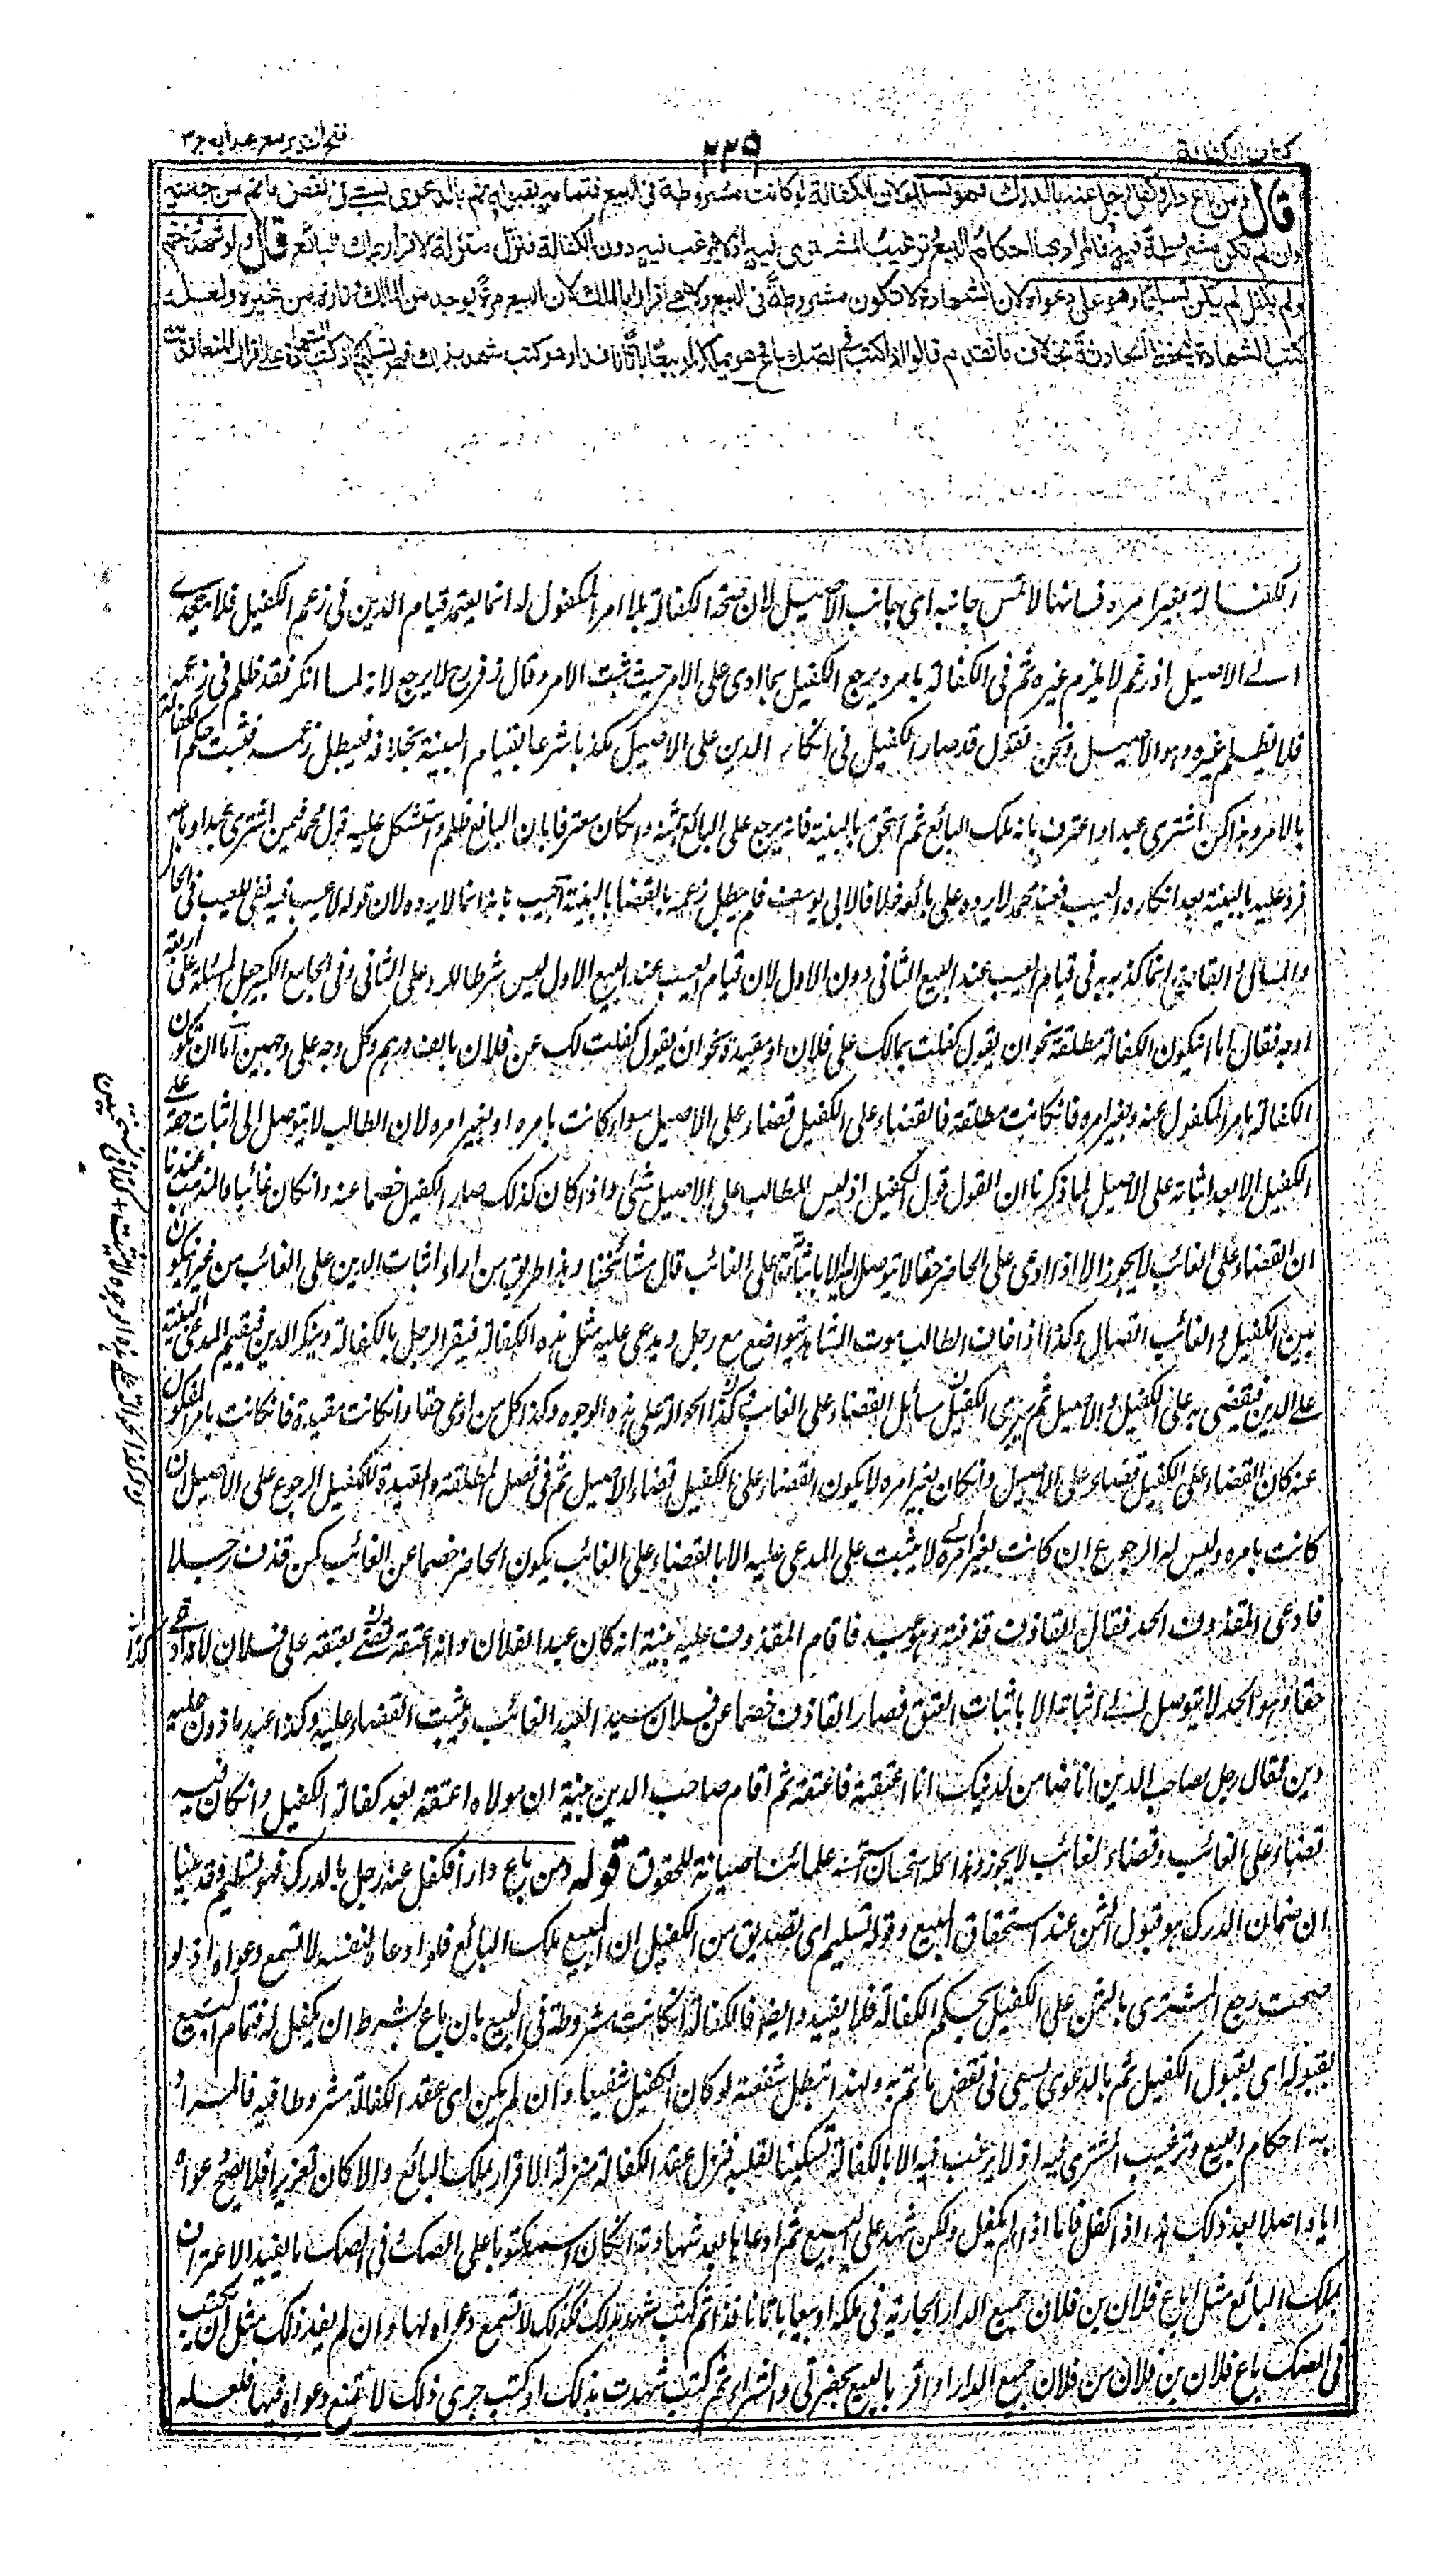 كتاب الكفالة
٢٢٩
فتح القدير مع هدايه ج٣
قال ومن باع دارا وكفل رجل عنه بالدرك فهو تسليم لان الكفالة لو كانت مشروطة فى البيع فتمامه بقبوله ثم بالدعوى يسعى فى نقض ما تم من جهته
وان لم تكن مشروطة فيه فالمراد بها احكام البيع وترغيب المشترى فيه اذ لا يرغب فيه دون الكفالة فنزل منزلة الاقرار بملك البائع قال ولو شهد وختم
ولم يكفل لم يكن تسليما وهو على دعواه لان الشهادة لا تكون مشروطة فى البيع ولا هى اقرار بالملك لان البيع مرة يوجد من المالك وتارة من غيره ولعله
كتب الشهادة ليحفظ الحادثة بخلاف ما تقدم قالوا اذا كتب فى الصك باع وهو يملكه او بيعا باتا نافذا وهو كتب شهد بذلك فهو تسليم الا اذا كتب الشهادة على اقرار المتعاقدين
الكفالة بغير امره فانها لا تمس جانبه اى جانب الاصيل لان صحة الكفالة بلا امر المكفول له انما يعتمد قيام الدين فى زعم الكفيل فلا يتعدى
الى الاصيل اذ زعم لا يلزم غيره ثم فى الكفالة بامره يرجع الكفيل بما ادى على الامر حيث ثبت الامر وقال زفر رح لا يرجع لانه لما انكر فقد ظلم فى زعمه
فلا يظلم غيره وهو الاصيل ونحن نقول قد صار الكفيل فى انكار الدين على الاصيل مكذبا شرعا لقيام البينة بخلافه فيبطل زعمه فثبت حكم الكفالة
بالامر وهذا كمن اشترى عبدا واعترف بانه ملك البائع ثم استحق بالبينة فانه يرجع على البائع بثمنه وان كان معترفا بان البائع ظلم واستشكل عليه قول محمد فيمن اشترى عبدا وباعه
فرد عليه بالبينة بعد انكاره العيب فعند محمد لا يرده على بائعه خلافا لابى يوسف فلم يبطل زعمه بالقضاء بالبينة اجيب بانه انما لا يرده لان قوله لا عيب فيه نفى للعيب فى الحال
والماضى والقاضى انما كذبه فى قيام العيب عند البيع الثانى دون الاول لان قيام العيب عند البيع الاول ليس شرطا للرد على الثانى وفى الجامع الكبير جعل المسئلة على اربعة
اوجه فقال اما ان يكون الكفالة مطلقة نحو ان يقول كفلت بمالك على فلان او مقيدة نحو ان يقول كفلت لك عن فلان بالف درهم وكل وجه على وجهين اما ان تكون
الكفالة بامر المكفول عنه وبغير امره فان كانت مطلقة فالقضاء على الكفيل قضاء على الاصيل سواء كانت بامره او بغير امره لان الطالب لا يتوصل الى اثبات حقه على
الكفيل الا بعد اثباته على الاصيل لما ذكرنا ان القول قول الكفيل اذ ليس للطالب على الاصيل شئ واذا كان كذلك صار الكفيل خصما عنه وان كان غائبا والمذهب عندنا
ان القضاء على الغائب لا يجوز الا اذا ادعى على الحاضر حقا لا يتوصل اليه الا باثباته على الغائب قال مشائخنا وهذا طريق من اراد اثبات الدين على الغائب من غير ان يكون
بين الكفيل والغائب اتصال وكذا اذا خاف الطالب موت الشاهد يتواضع مع رجل ويدعى عليه مثل هذه الكفالة فيقر الرجل بالكفالة وينكر الدين فيقيم المدعى البينة
على الدين فيقضى به على الكفيل والاصيل ثم يبرئ الكفيل مسائل القضاء على الغائب كذا الحوالة على هذه الوجوه وكذا كل من ادعى حقا وان كانت مقيدة فان كانت بامر المكفول
عنه كان القضاء على الكفيل قضاء على الاصيل وان كان بغير امره لا يكون القضاء على الكفيل قضاء الاصيل ثم فى فصل المطلقة والمقيدة للكفيل الرجوع على الاصيل ان
كانت بامره وليس له الرجوع ان كانت بغير امره لا يثبت على المدعى عليه الا بالقضاء على الغائب يكون الحاضر خصما عن الغائب كمن قذف رجلا
فادعى المقذوف الحد فقال القاذف قذفته وهو عبد فاقام المقذوف عليه بينة انه كان عبدا لفلان وانه اعتقه قضى بعتقه على فلان لانه ادعى
حقا وهو الحد لا يتوصل الى اثباته الا باثبات العتق فصار القاذف خصما عن فلان سيد العبد الغائب ويثبت القضاء عليه وكذا عبد ماذون عليه
دين فقال رجل لصاحب الدين انا ضامن لدينك انا اعتقته فاعتقه ثم اقام صاحب الدين بينة ان مولاه اعتقه بعد كفالة الكفيل وان كان فيه
قضاء على الغائب وقضاء الغائب لا يجوز وهذا كله استحسان استحسنه علمائنا صيانة للحقوق قوله ومن باع دارا فكفل عنه رجل بالدرك فهو تسليم وقد بينا
ان ضمان الدرك هو قبول الثمن عند استحقاق المبيع وقوله تسليم اى تصديق من الكفيل ان المبيع ملك البائع فلو ادعاه لنفسه لا تسمع دعواه اذ لو
صحت رجع المشترى بالثمن على الكفيل بحكم الكفالة فلا يفيد وايضا فالكفالة ان كانت مشروطة فى البيع بان باع بشرط ان يكفل له فتمام البيع
بقبوله اى بقبول الكفيل ثم بالدعوى يسعى فى نقض ما تم به ولهذا تبطل شفعته لو كان الكفيل شفيعا وان لم يكن اى عقد الكفالة مشروطا فيه فالمراد
به احكام البيع وترغيب المشترى فيه اذ لا يرغب فيه الا بالكفالة تسكينا لقلبه فنزل عقد الكفالة منزلة الاقرار بملك البائع والا كان تغريرا فلا يصح دعواه
اياه اصلا بعد ذلك هذا اذا كفل فاما اذا لم يكفل ولكن شهد على البيع ثم ادعاها بعد شهادته ان كان اسمه مكتوبا على الصك فى الصك ما يفيد الاعتراف
بملك البائع مثل باع فلان بن فلان جميع الدار الجارية فى ملكه او بيعا باتا نافذا ثم كتب شهد بذلك فكذلك لا تسمع دعواه لها وان لم يفد ذلك مثل ان يكتب
فى الصك باع فلان بن فلان من فلان جميع الدار او اقر بالبيع بحضرتى والشراء ثم كتب شهدت بذلك او كتب جرى ذلك لا تمنع دعواه فيها فلعله